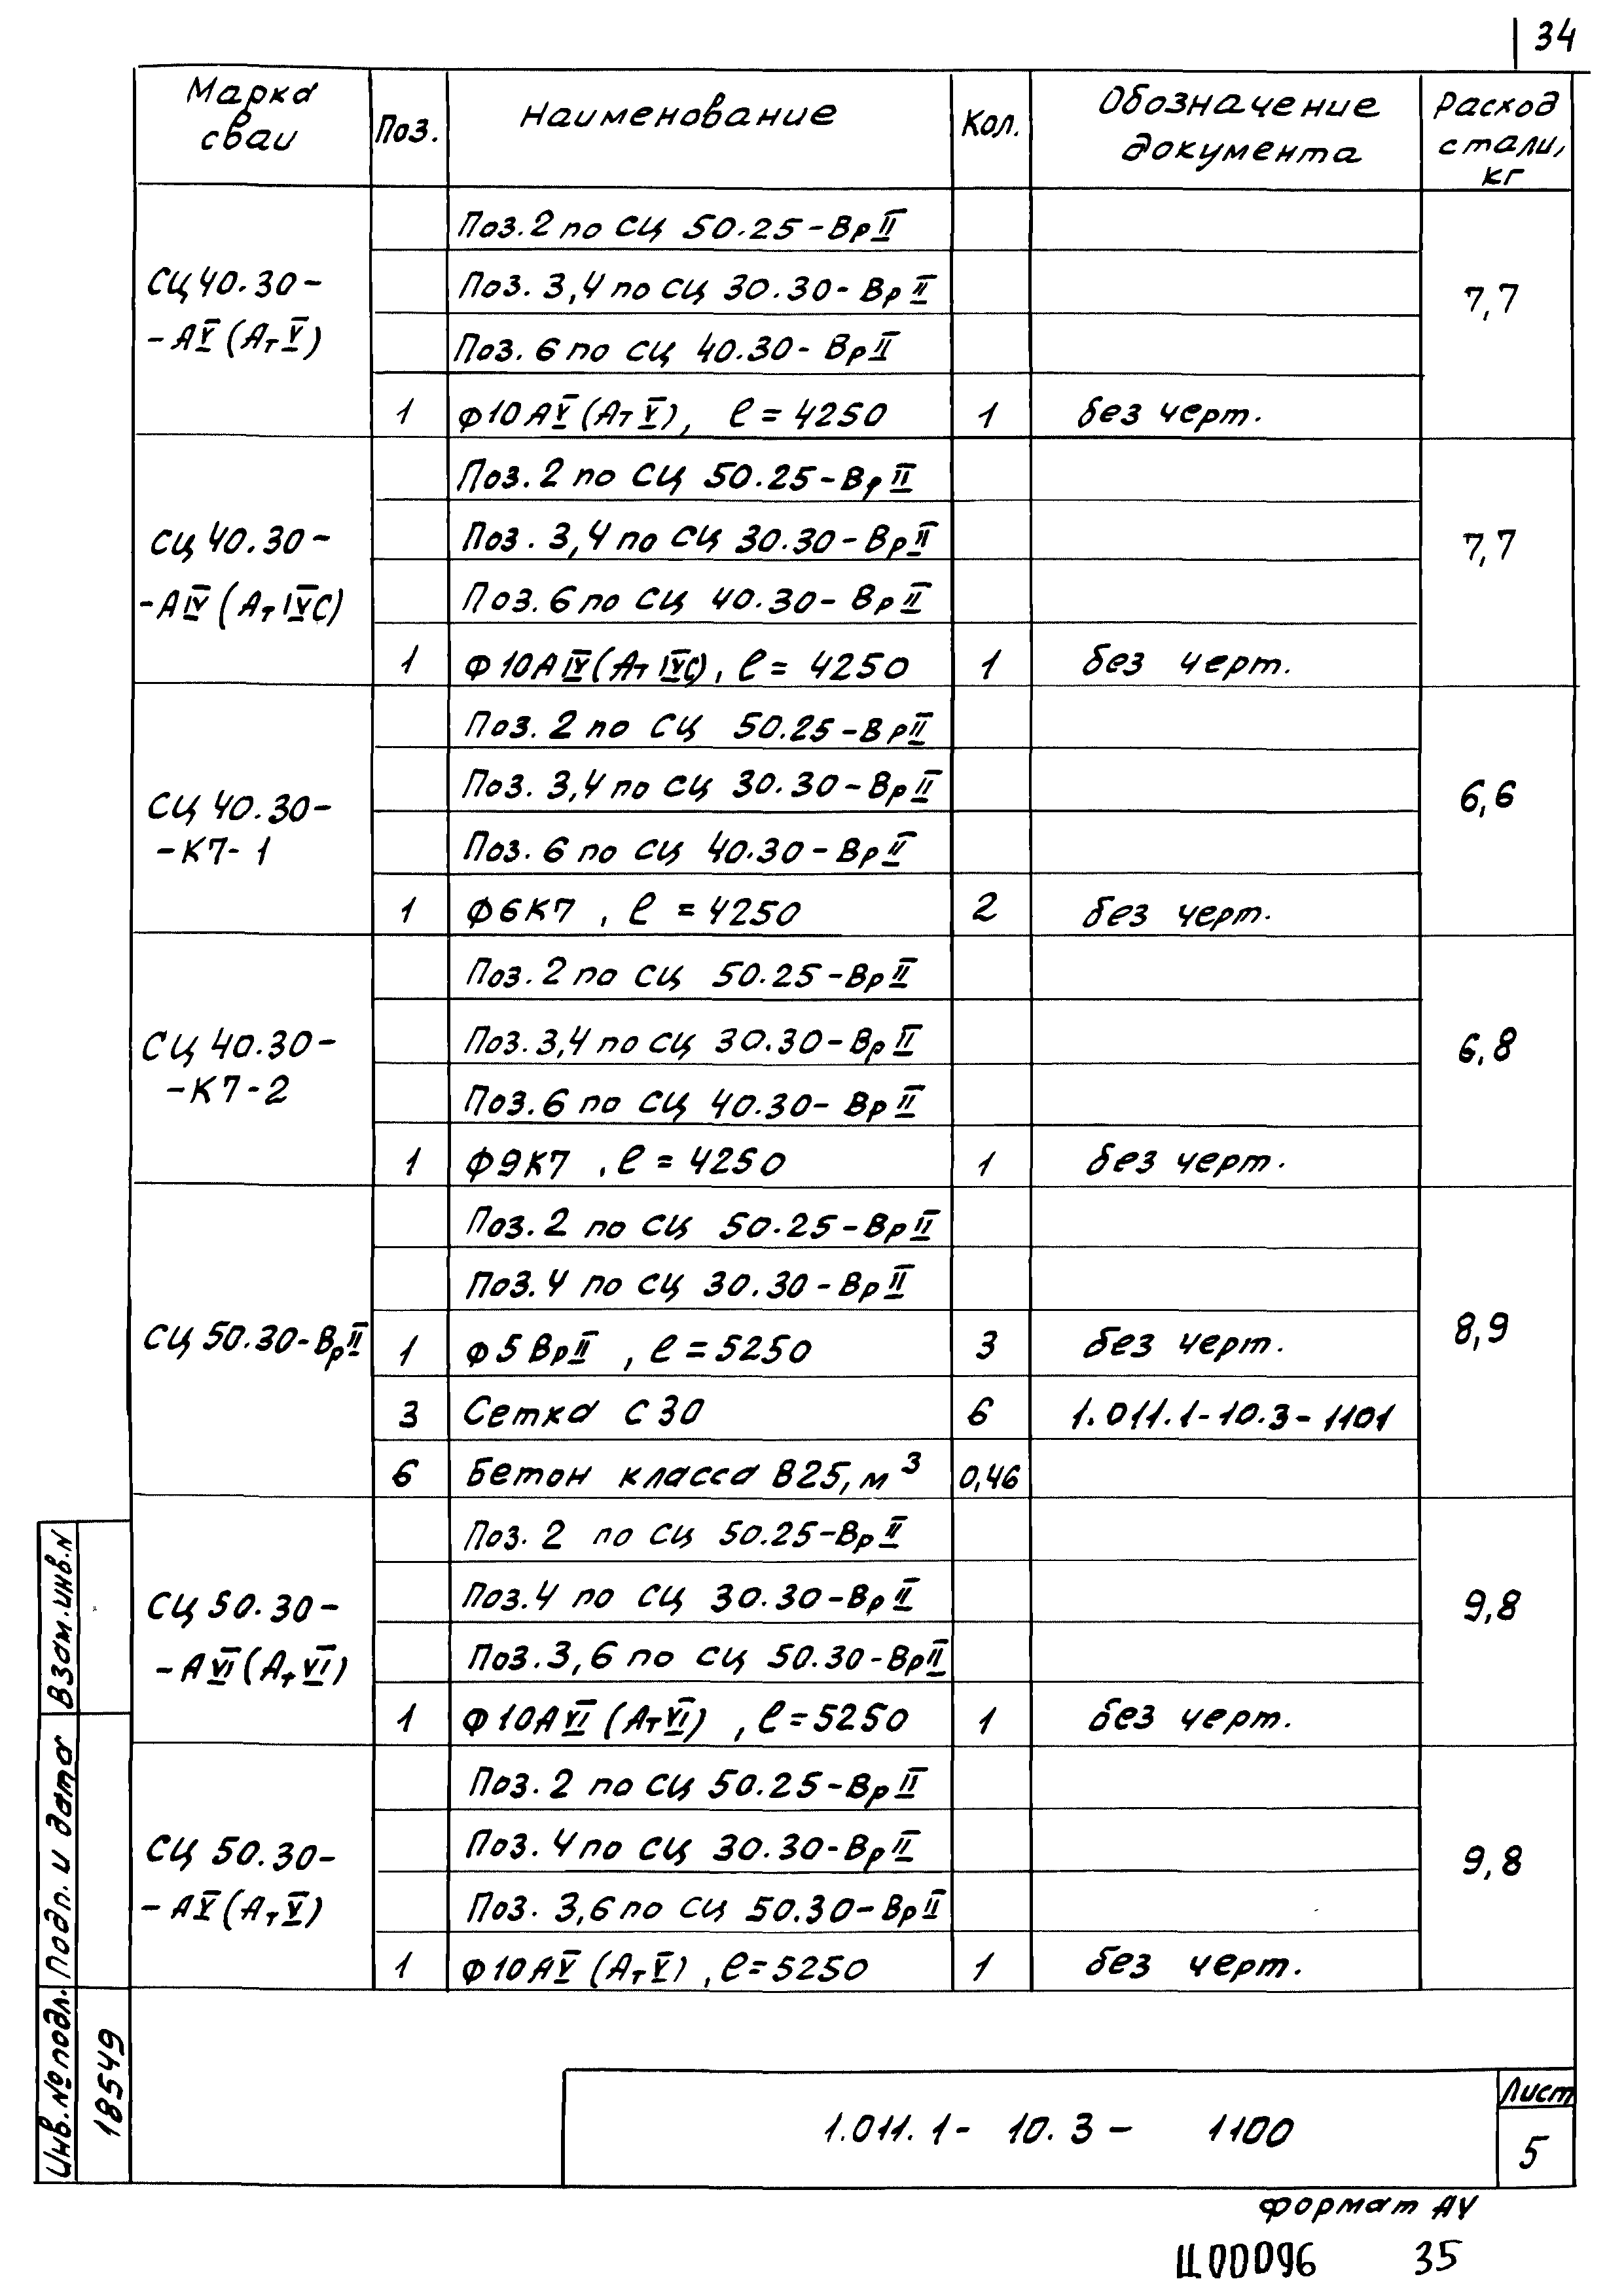 34
Марка сваи
Поз.
Наименование
Кол.
Обозначение документа
Расход стали, кг
СЦ 40.30-
-АV (АтV)
7,7
Поз. 2 по СЦ 50.25-ВрII
Поз. 3,4 по СЦ 30.30-ВрII
Поз. 6 по СЦ 40.30-ВрII
1 Ф10АV (АтV), ℓ=4250 1 без черт.
СЦ 40.30-
-АIV (АтIVС)
7,7
Поз. 2 по СЦ 50.25-ВрII
Поз. 3,4 по СЦ 30.30-ВрII
Поз. 6 по СЦ 40.30-ВрII
1 Ф10АIV (АтIVС), ℓ=4250 1 без черт.
СЦ 40.30-
-К7-1
6,6
Поз. 2 по СЦ 50.25-ВрII
Поз. 3,4 по СЦ 30.30-ВрII
Поз. 6 по СЦ 40.30-ВрII
1 Ф6К7, ℓ=4250 2 без черт.
СЦ 40.30-
-К7-2
6,8
Поз. 2 по СЦ 50.25-ВрII
Поз. 3,4 по СЦ 30.30-ВрII
Поз. 6 по СЦ 40.30-ВрII
1 Ф9К7, ℓ=4250 1 без черт.
СЦ 50.30-ВрII
8,9
Поз. 2 по СЦ 50.25-ВрII
Поз. 4 по СЦ 30.30-ВрII
1 Ф5ВрII, ℓ=5250 3 без черт.
3 Сетка С30 6 1.011.1-10.3-1101
6 Бетон класса В25, м³ 0,46
СЦ 50.30-
-АVI (АтVI)
9,8
Поз. 2 по СЦ 50.25-ВрII
Поз. 4 по СЦ 30.30-ВрII
Поз. 3,6 по СЦ 50.30-ВрII
1 Ф10АVI (АтVI), ℓ=5250 1 без черт.
СЦ 50.30-
-АV (АтV)
9,8
Поз. 2 по СЦ 50.25-ВрII
Поз. 4 по СЦ 30.30-ВрII
Поз. 3,6 по СЦ 50.30-ВрII
1 Ф10АV (АтV), ℓ=5250 1 без черт.
Взам.инв.N
Подп. и дата
Инв.№подл.
18549
1.011.1-10.3-1100
Лист
5
Формат А4
Ц00096 35